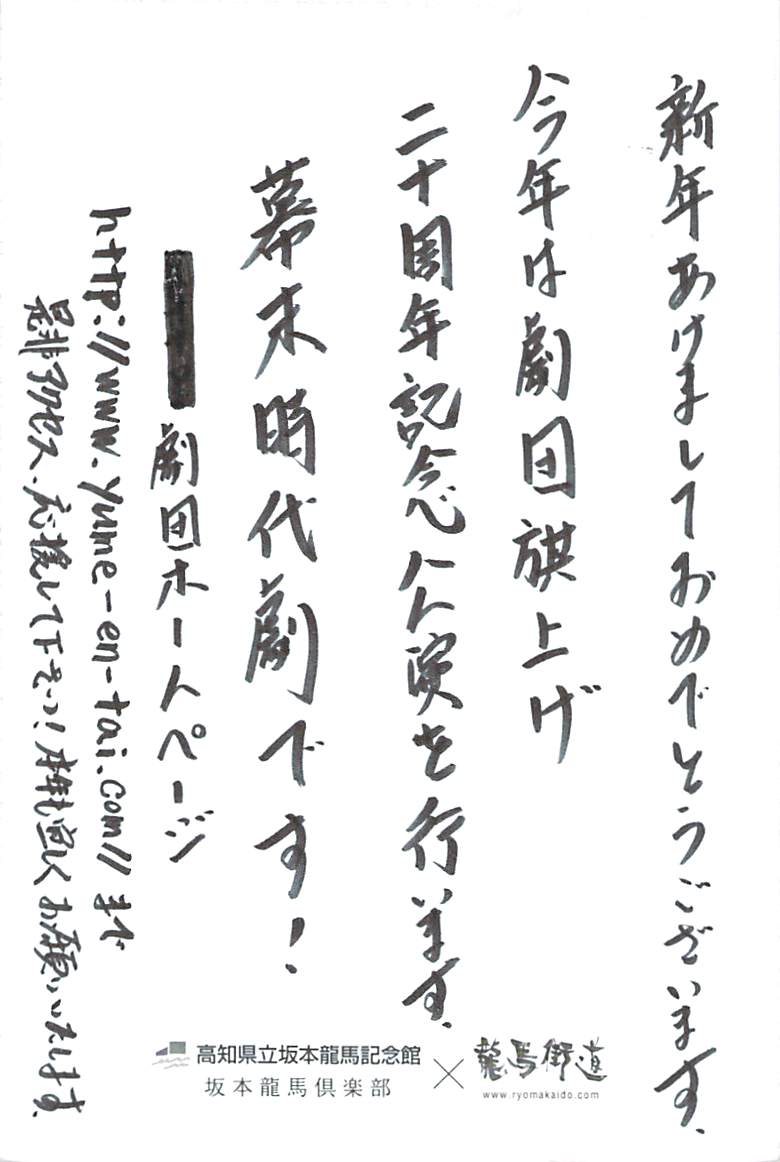 新年あけましておめでとうございます.
今年は劇団旗上げ
二十周年記念公演を行います.
幕末時代劇です!
劇団ホームページ
http://www.yume-en-tai.com// まで
是非アクセス、応援して下さいっ!本年も宜しくお願いいたします.
高知県立坂本龍馬記念館
坂本龍馬倶楽部
×
龍馬街道
www.ryomakaido.com